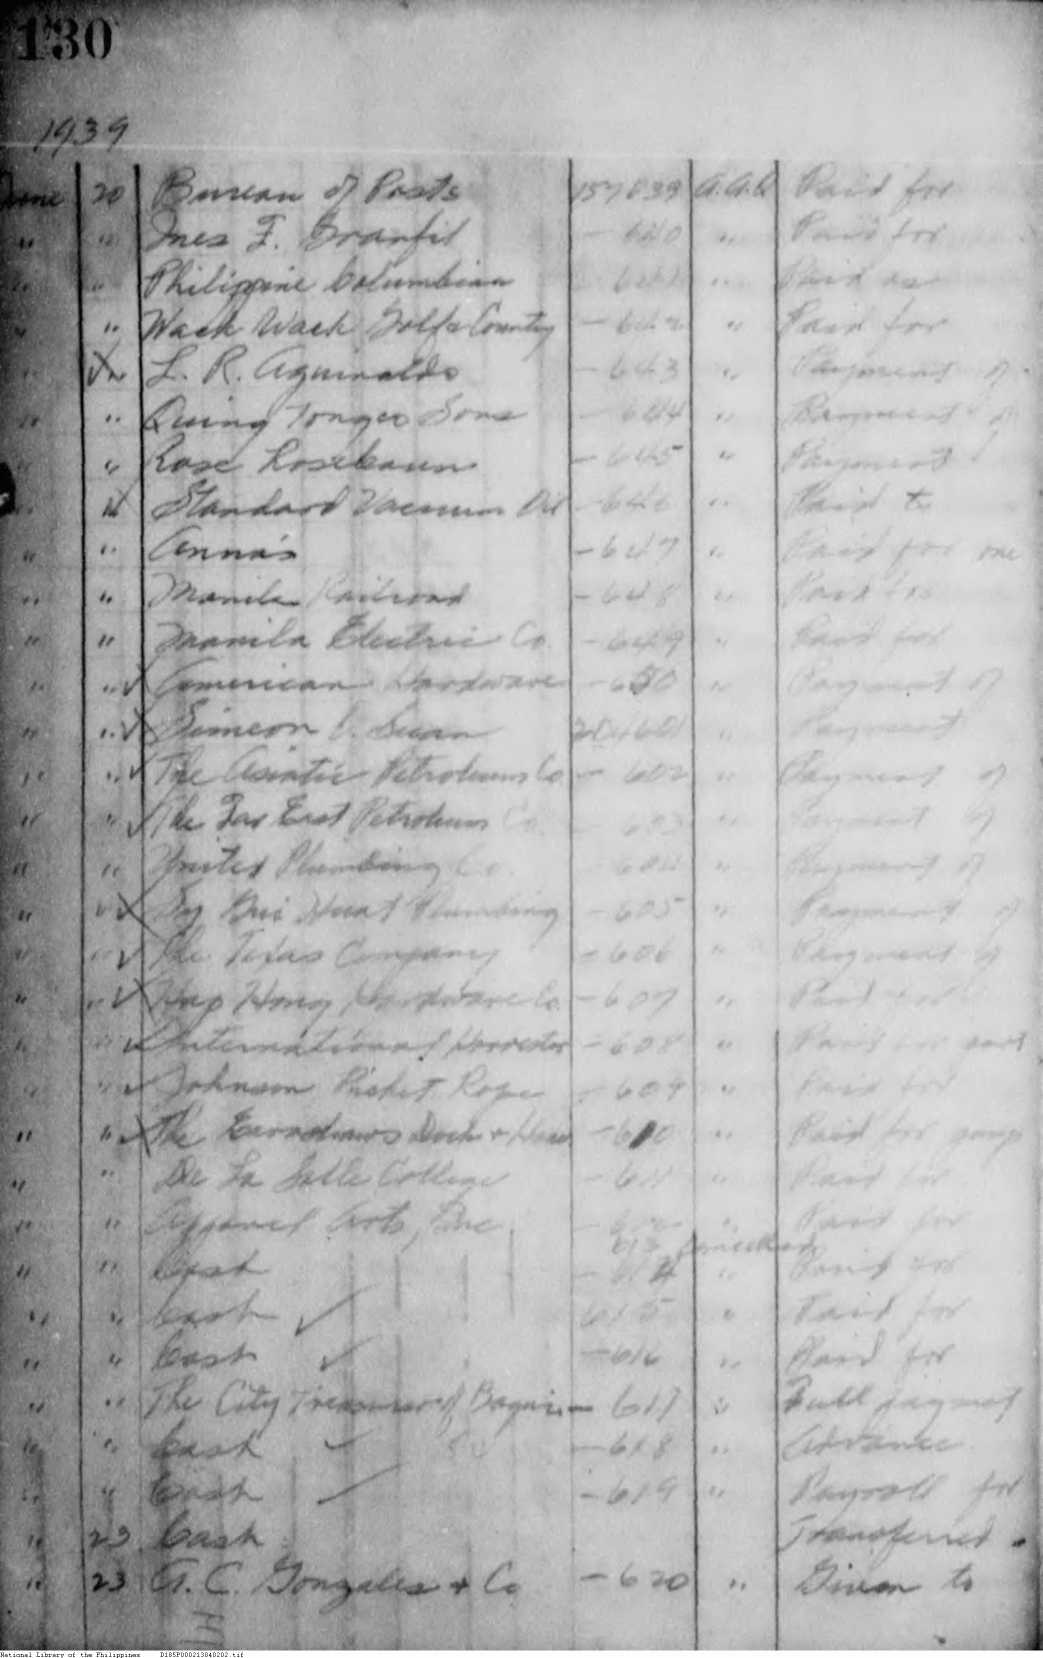 130
1939
June 20 Bureau of Posts 157039 A.A.Q Paid for
" " Ines F. - 640 " Paid for
" Philippine Columbian 641 " Paid as
" Wack Wack Golf & Country - 642 " Paid for
" L. R. Aguinaldo - 643 " Payment of
" " Sons - 644 " Payment of
" " Rose Rosebaum - 645 " Payment
" " Standard Vacuum Oil - 646 " Paid to
" " Anna's - 647 " Paid for one
" " Manila Railroad - 648 " Paid for
" " Manila Electric Co. - 649 " Paid for
" " ✓ American Hardware - 650 " Payment of
" " ✓ Simeon 204601 " Payment
" " ✓ The Asiatic Petroleum Co - 602 " Payment of
" " ✓ The Far East Petroleum Co. 603 " Payment of
" " United Plumbing Co. - 604 " Payment of
" " Plumbing - 605 " Payment of
" " ✓ The Texas Company - 606 " Payment of
" " ✓ Hap Hong Hardware Co. - 607 " Paid for
" " ✓ International Harvester - 608 " Paid for part
" " ✓ Johnson Picket Rope - 609 " Paid for
" " The Earnshaws Dock & - 610 " Paid for
" " De La Salle College - 611 " Paid for
" " Apparel Arts, Inc. - 612 " Paid for
613 Cancelled
" " Cash - 614 " Paid for
" " Cash ✓ 615 " Paid for
" " Cash ✓ - 616 " Paid for
" " The City Treasurer of Baguio - 617 " Full payment
" " Cash ✓ - 618 " Advance
" " Cash ✓ - 619 " Payroll for
" 23 Cash Transferred
" 23 A. C. Gonzales & Co - 620 " Given to
National Library of the Philippines D185P000213840202.tif